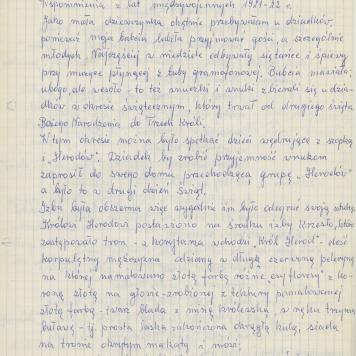 Wspomnienia z lat międzywojennych 1921-22 r.
Jako mała dziewczynka chętnie przebywałam u dziadków,
ponieważ moja babcia lubiła przyjmować gości, a szczególnie
młodych. Najczęściej w niedziele odbywały się tańce i śpiewy
przy muzyce płynącej z tuby gramofonowej. Babcia mawiała:
ubogo, ale wesoło - to też wnuczki i wnuki zbierali się u dzia-
dków w okresie świątecznym, który trwał od drugiego święta
Bożego Narodzenia do Trzech Króli.
W tym okresie można było spotkać dzieci wędrujące z szopką
i "Herodów". Dziadek by zrobić przyjemność wnukom
zaprosił do swego domu przechodzącą grupę "Herodów"
a było to w drugi dzień Świąt.
Izba była obszerna więc wygodnie im było odegrać swoją sztukę.
Królowi Herodowi postawiono na środku izby krzesło, które
zastępowało tron - z korytarza wchodzi "Król Herod" - dość
korpulentny mężczyzna odziany w długą czerwoną pelerynę
na której namalowano złotą farbą różne z ko-
roną złotą na głowie - zrobionej z tektury pomalowanej
złotą farbą - twarz blada z miną królewską, w ręku trzyma
buławę - tj. prosta laska zakończona okrągłą kulą, siada
na tronie okrytym makatą i mówi: